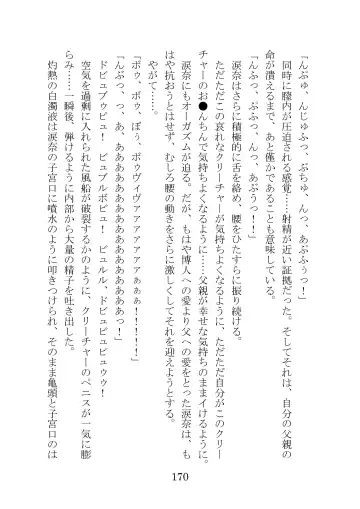 「んぷゅ、んじゅふっ、ぷちゅ、んっ、あぷふぅっ！」
同時に膣内が圧迫される感覚……射精が近い証拠だった。そしてそれは、自分の父親の
命が潰えるまで、あと僅かであることも意味している。
「んふっっ、ぷふっ、んっ、あぷうっ！」
涙奈はさらに積極的に舌を絡め、腰をひたすらに振り続ける。
ただただこの哀れなクリーチャーが気持ちよくなるように、ただただ自分がこのクリー
チャーのお●んちんで気持ちよくなるように……父親が幸せな気持ちのままイけるように。
涙奈にもオーガズムが迫る。だが、もはや博人への愛より父への愛をとった涙奈は、も
はや抗おうとはせず、むしろ腰の動きをさらに激しくしてそれを迎えようとする。
やがて……。
「ボゥ、ボゥ、ぼぅ、ボゥヴィヴァアアアアアぁぁぁ！！！！！」
「んぷっ、っ、あ、あああああああああああああああっ！」
ドピュブゥピュ！　ビュブルボビュ！　ビュルル、ドビュビュビュゥゥ！
空気を過剰に入れられた風船が破裂するかのように、クリーチャーのペニスが一気に膨
らみ……一瞬後、弾けるように内部から大量の精子を吐き出した。
灼熱の白濁液は涙奈の子宮口に噴水のように叩きつけられ、そのまま亀頭と子宮口のは
170